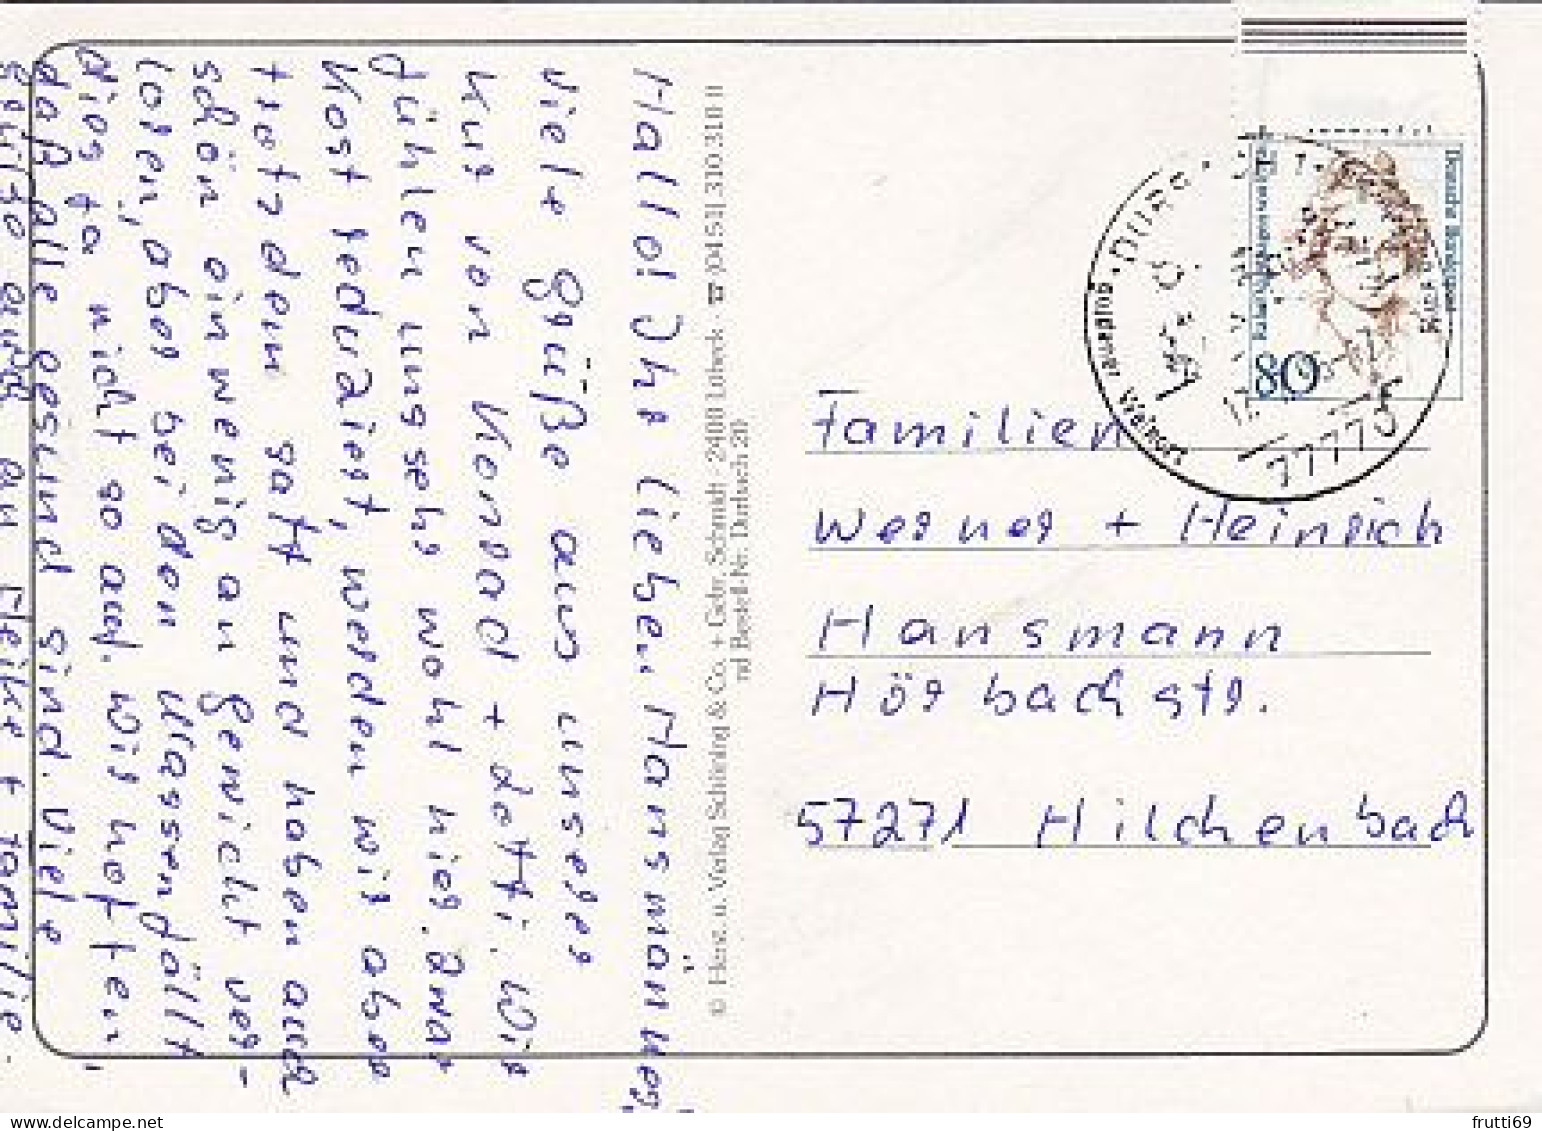 Hallo! Ihr lieben Hansmänner,
viele Grüße aus unserer
Kur von Konrad + Lotti. Wir
fühlen uns sehr wohl hier. Zwar
Kost reduziert, werden wir aber
trotzdem satt und haben auch
schön ein wenig an Gewicht ver-
loren, aber bei den Wassergefällt
dies ja nicht so auf. Wir hoffen,
daß alle gesund sind. Viele
Grüße auch an Heike + Familie.
© Herst. u. Verlag Schöning & Co. + Gebr. Schmidt · 2400 Lübeck · ☎ (0451) 310 310
nd Bestell-Nr. Durbach 20
Deutsche Bundespost
80
DURBACH
Wein- u.
Erholungsort
77770
Familien
Werner + Heinrich
Hansmann
Hörbachstr.
57271 Hilchenbach
frutti69